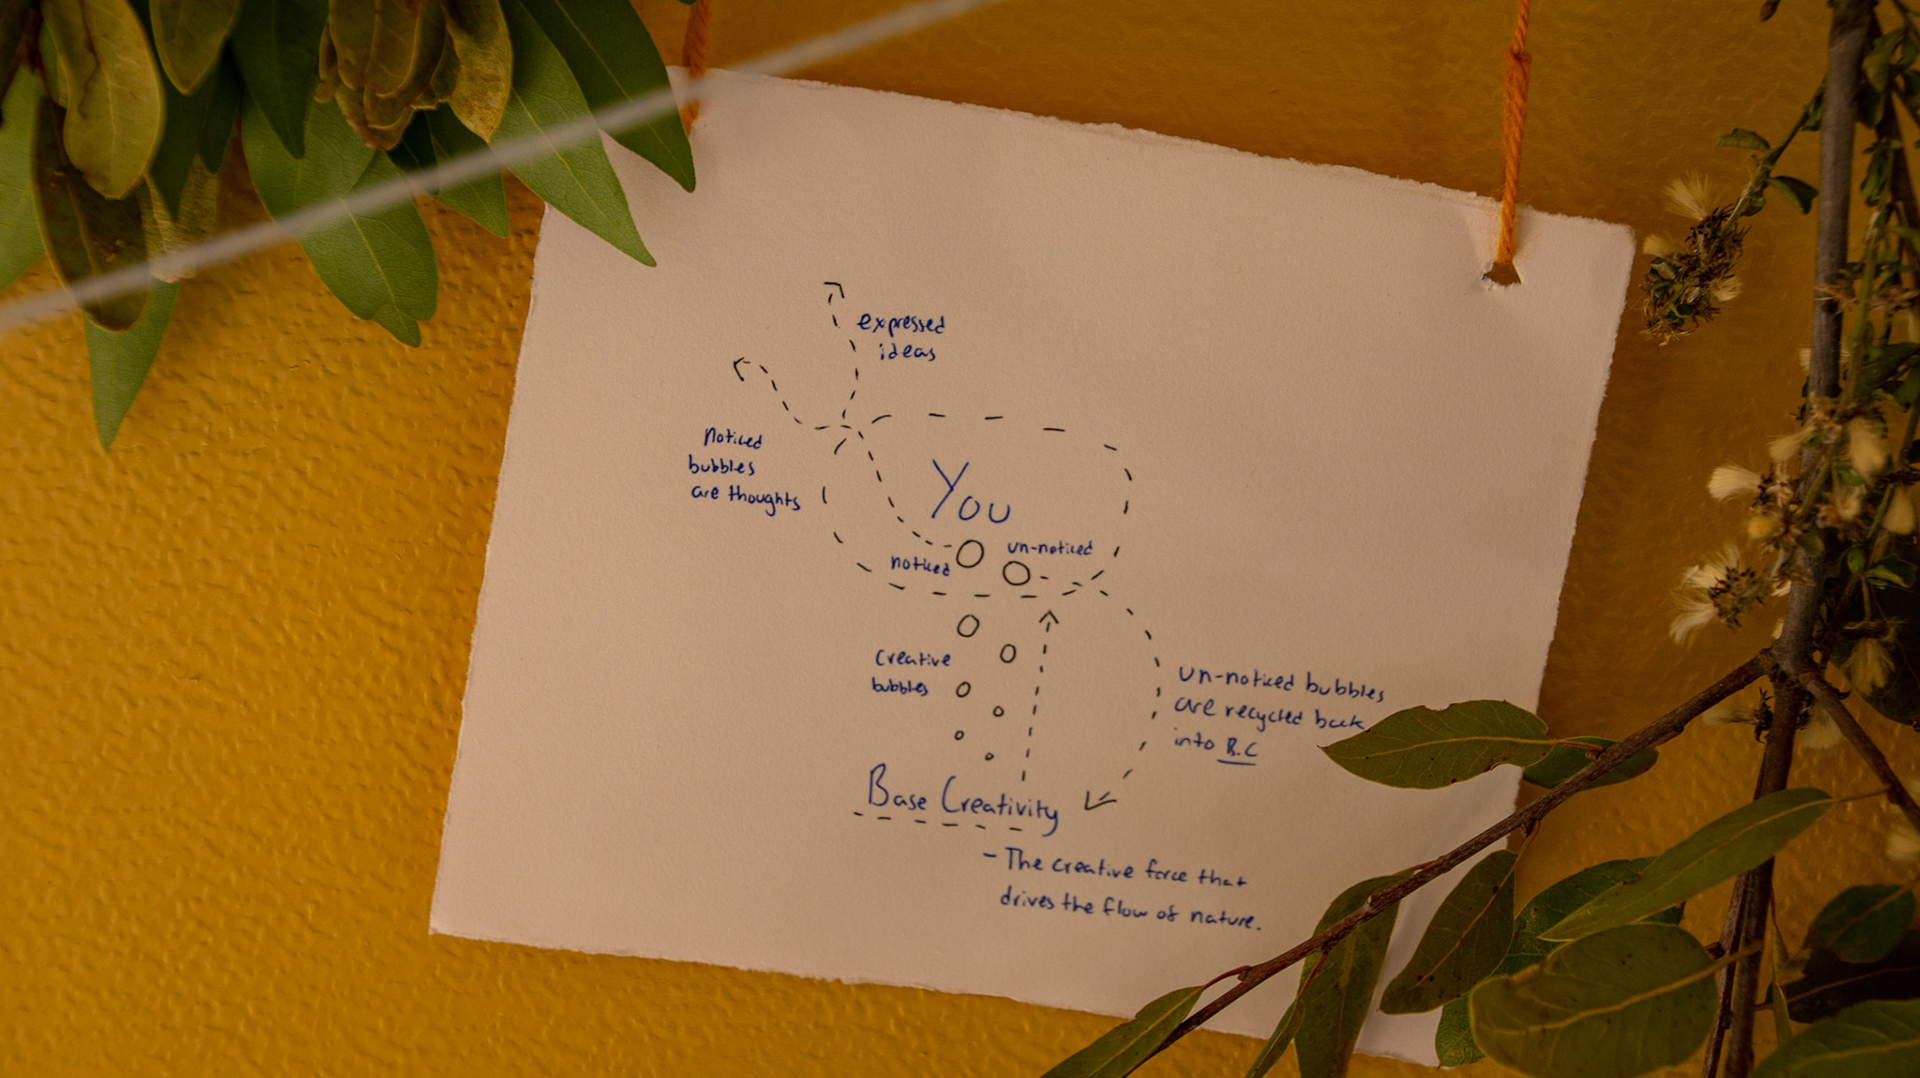 expressed
ideas
Noticed
bubbles
are thoughts
You
un-noticed
noticed
Creative
bubbles
un-noticed bubbles
are recycled back
into B.C
Base Creativity
- The creative force that
drives the flow of nature.